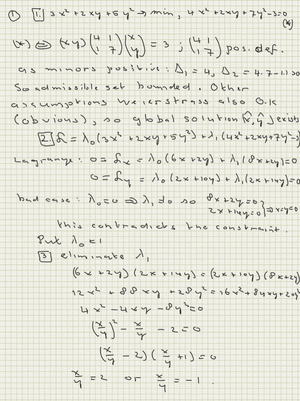 ① 1. 3x²+2xy+5y² → min, 4x²+2xy+7y²-3=0 (*)
(*) ⇔ (x y) (4 1 / 1 7) (x / y) = 3 ; (4 1 / 1 7) pos. def.
as minors positive: Δ₁ = 4, Δ₂ = 4·7-1·1>0
So admissible set bounded. Other
assumptions Weierstrass also O.K
(obvious), so global solution (x̂,ŷ) exists
2. ℒ = λ₀(3x²+2xy+5y²)+λ₁(4x²+2xy+7y²-3)
Lagrange: 0 = ℒₓ = λ₀(6x+2y)+λ₁(8x+2y)=0
0 = ℒy = λ₀(2x+10y)+λ₁(2x+14y)=0
bad case: λ₀=0 ⇒ λ₁≠0 so 8x+2y=0
2x+14y=0 } ⇒ x=y=0
this contradicts the constraint.
Put λ₀=1
3 eliminate λ₁
(6x+2y)(2x+14y) = (2x+10y)(8x+2y)
12x²+88xy+28y² = 16x²+84xy+20y²
4x²-4xy-8y²=0
(x/y)² - x/y - 2 = 0
(x/y - 2)(x/y + 1) = 0
x/y = 2 or x/y = -1.